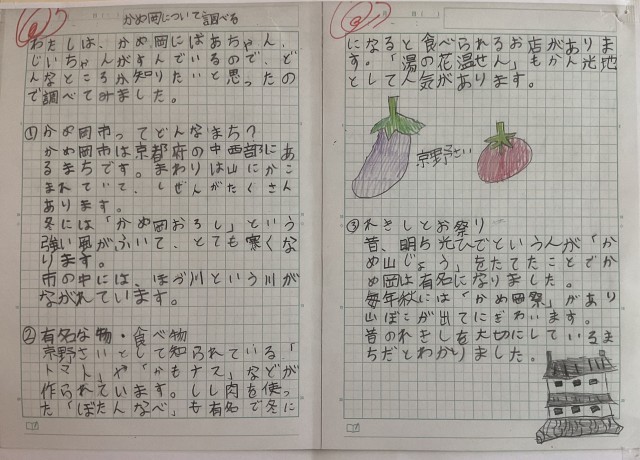 かめ岡について調べる
わたしは、かめ岡にばあちゃん、
じいちゃんがすんでいるので、ど
んなところか知りたいと思ったの
で調べてみました。
①かめ岡市ってどんなまち?
かめ岡市は京都府の中西部にあ
るまちです。まわりは山にかこ
まれていて、しぜんがたくさん
あります。
冬には「かめ岡おろし」という
強い風がふいて、とても寒くな
ります。
市の中には、ほづ川という川が
ながれています。
②有名な物・食べ物
京野さいとして知られている「
トマト」や「かもナス」などが
作られています。しし肉を使っ
た「ぼたんなべ」も有名で冬に
になると食べられるお店がありま
す。「湯の花温せん」もかん光地
として人気があります。
京野さい
③れきしとお祭り
昔、明ち光ひでという人が「か
め山じょう」をたてたことでか
め岡は有名になりました。
毎年秋には「かめ岡祭」があり
山ぼこが出てにぎわいます。
昔のれきしを大切にしているま
ちだとわかりました。